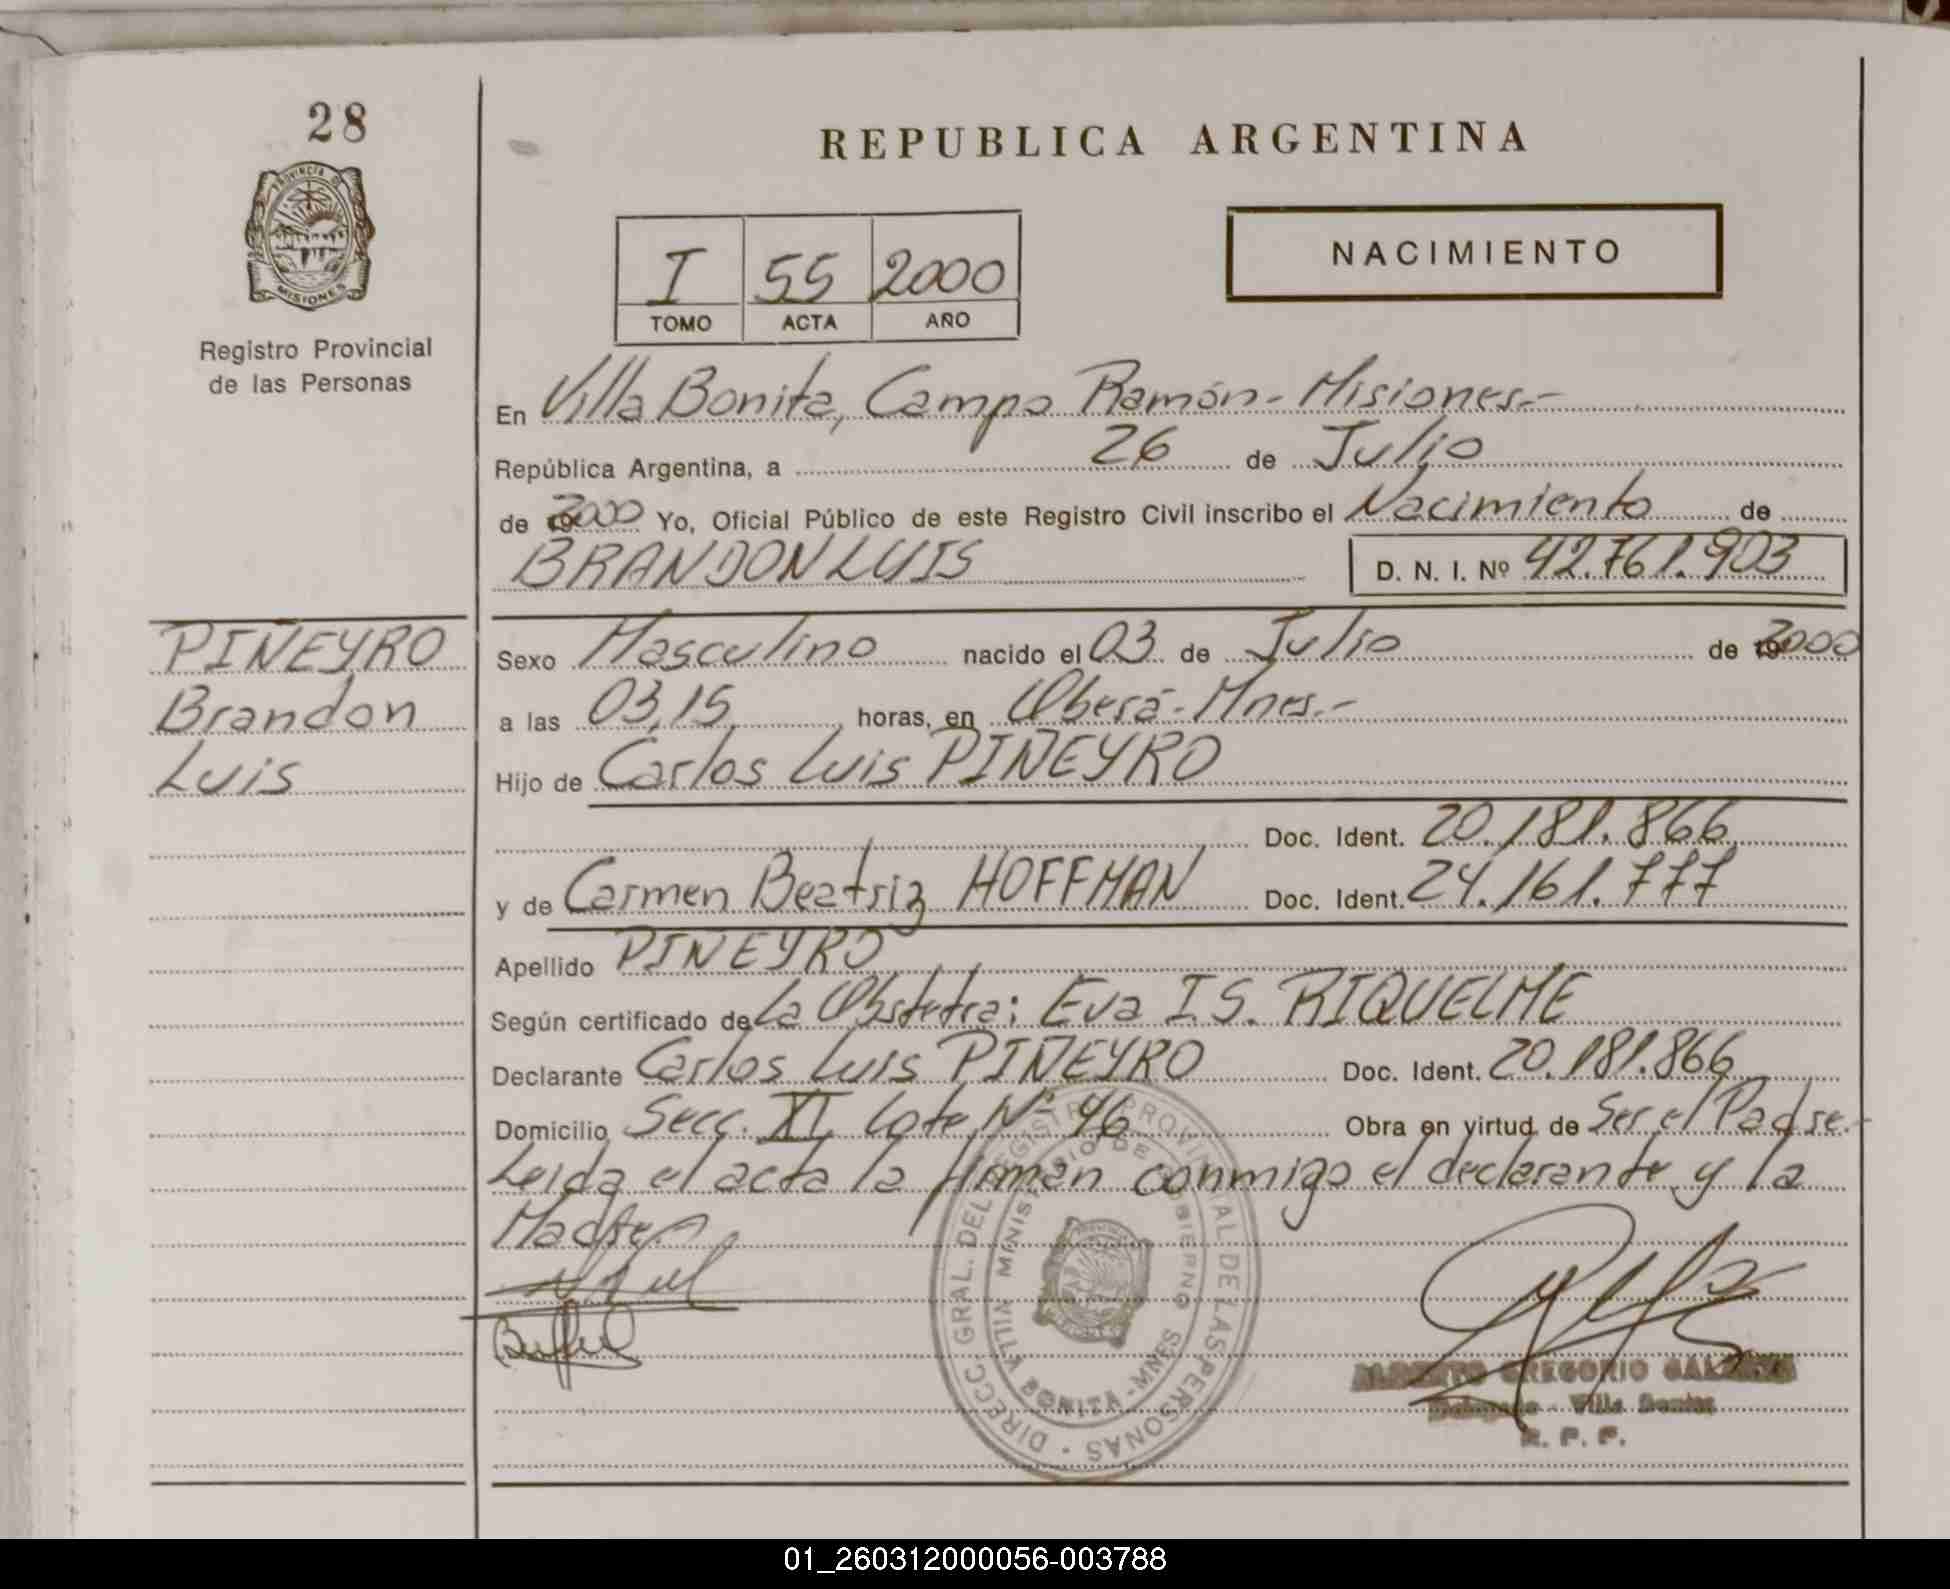 28
PROVINCIA DE
MISIONES
Registro Provincial
de las Personas
REPUBLICA ARGENTINA
I 55 2000
TOMO ACTA AÑO
NACIMIENTO
En Villa Bonita, Campo Ramón - Misiones.-
República Argentina, a 26 de Julio
de 2000 Yo, Oficial Público de este Registro Civil inscribo el Nacimiento de
BRANDON LUIS D. N. I. Nº 42.761.903
PIÑEYRO
Brandon
Luis
Sexo Masculino nacido el 03 de Julio de 2000
a las 03,15 horas, en Oberá - Mnes.-
Hijo de Carlos Luis PIÑEYRO
Doc. Ident. 20.181.866
y de Carmen Beatriz HOFFMAN Doc. Ident. 24.161.777
Apellido PIÑEYRO
Según certificado de La Obstetra: Eva I.S. RIQUELME
Declarante Carlos Luis PIÑEYRO Doc. Ident. 20.181.866
Domicilio Secc. XI Lote Nº 46 Obra en virtud de Ser el Padre.-
Leida el acta la firman conmigo el declarante y la
Madre.-
DIRECC. GRAL. DEL REGISTRO PROVINCIAL DE LAS PERSONAS
MINISTERIO DE GOBIERNO
VILLA BONITA - MNES
ALBERTO GREGORIO
Villa Bonita
R. P. P.
01_260312000056-003788